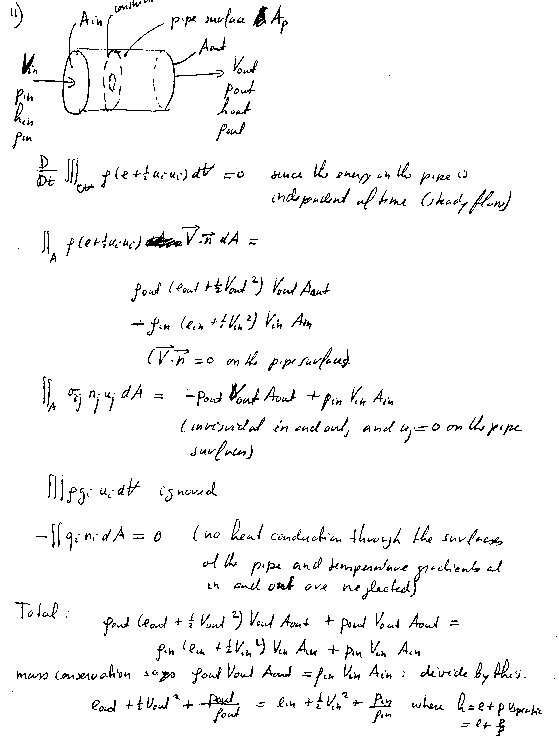 11)
Ain
pipe surface Ap
Aout
Vin
pin
hin
ρin
Vout
pout
hout
ρout
D/Dt ∭ ρ(e+½uiui)dV = 0 since the energy in the pipe is
independent of time (steady flow)
∬A ρ(e+½uiui) V⃗·n⃗ dA =
ρout (eout + ½Vout²) Vout Aout
− ρin (ein + ½Vin²) Vin Ain
(V⃗·n⃗ = 0 on the pipe surface)
∬A σij nj uj dA = −pout Vout Aout + pin Vin Ain
(inviscid at in and out, and uj = 0 on the pipe
surface)
∭ρgi ui dV ignored
−∬qi ni dA = 0 (no heat conduction through the surfaces
of the pipe and temperature gradients at
in and out are neglected)
Total:
ρout (eout + ½Vout²) Vout Aout + pout Vout Aout =
ρin (ein + ½Vin²) Vin Ain + pin Vin Ain
mass conservation says ρout Vout Aout = ρin Vin Ain : divide by this.
eout + ½Vout² + pout/ρout = ein + ½Vin² + pin/ρin where h = e + p
= e + p/ρ